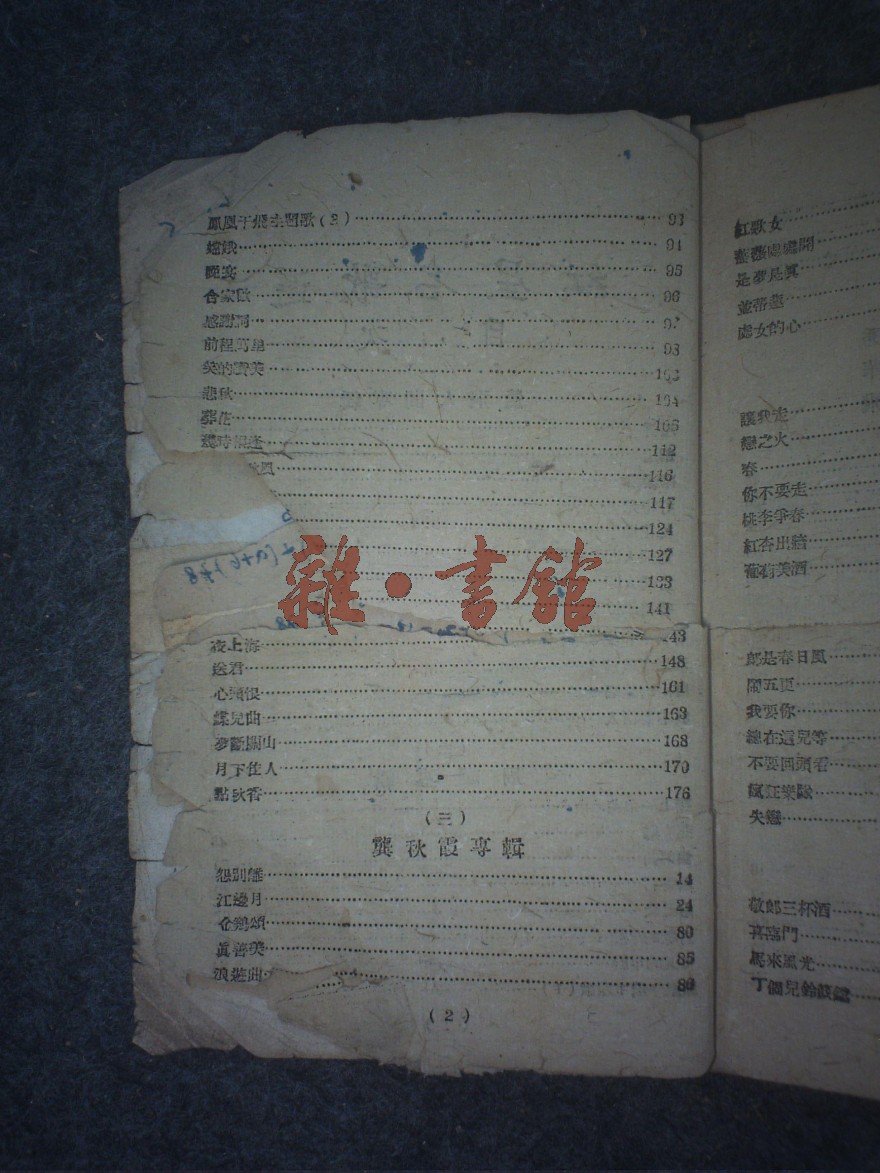 鳳凰于飛主題歌(2)……93
嫦娥……94
晚宴……95
合家歡……96
感謝詞……97
前程萬里……98
笑的讚美……103
悲秋……104
葬花……105
鸞時相逢……112
風……116
……117
……124
……127
……133
……141
雜·書館
夜上海……143
送君……148
心頭恨……161
蝶兒曲……163
夢斷關山……168
月下佳人……170
點秋香……176
(三)
龔秋霞專輯
怨別離……14
江邊月……24
金鷄頌……80
眞善美……85
浪遊曲……86
(2)
紅歌女……
薔薇處處開……
是夢是眞……
並蒂蓮……
處女的心……
讓我走……
戀之火……
春……
你不要走……
桃李爭春……
紅杏出牆……
葡萄美酒……
郎是春日風……
鬧五更……
我要你……
總在這兒等……
不要回頭看……
瘋狂樂隊……
失戀……
敬郎三杯酒……
喜臨門……
馬來風光……